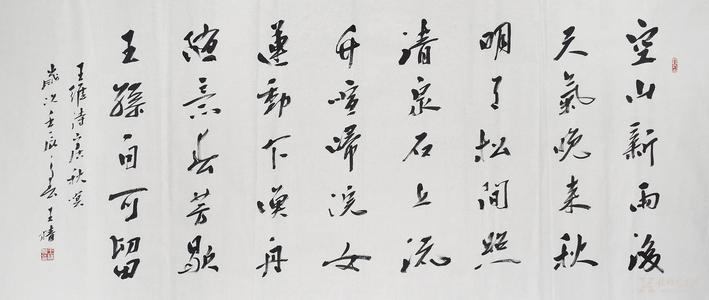 空山新雨後
天氣晚来秋
明月松間照
清泉石上流
竹喧歸浣女
蓮動下漁舟
随意春芳歇
王孫自可留
王維诗山居秋暝
歲次壬辰